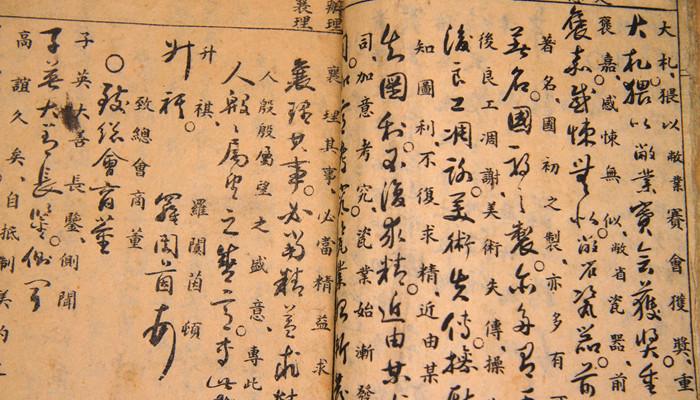 大札、猥以敝業賽會獲獎、重
大札猥以敝業賽會獲獎重
褒嘉、感悚無似、敝省瓷器、前
褒嘉感悚無似敝省瓷器前
著名、國初之製、亦多有
著名國初之製亦多有
後良工凋謝、美術失傳、操
後良工凋謝美術失傳操
知圖利、不復求精、近由某
知圖利不復求精近由某
司、加意考究、瓷業始漸發
司加意考究瓷業始漸發
辦理
襄理
襄理其事、必當精益求
襄理其事必當精益求精
人殷殷屬望之盛意、專此
人殷殷屬望之盛意專此
升祺、 羅閬茵頓
升祺 羅閬茵頓
致總會商董
致總會商董
子英大善長鑒、側聞
子英大善長鑒側聞
高誼久矣、自抵制美約